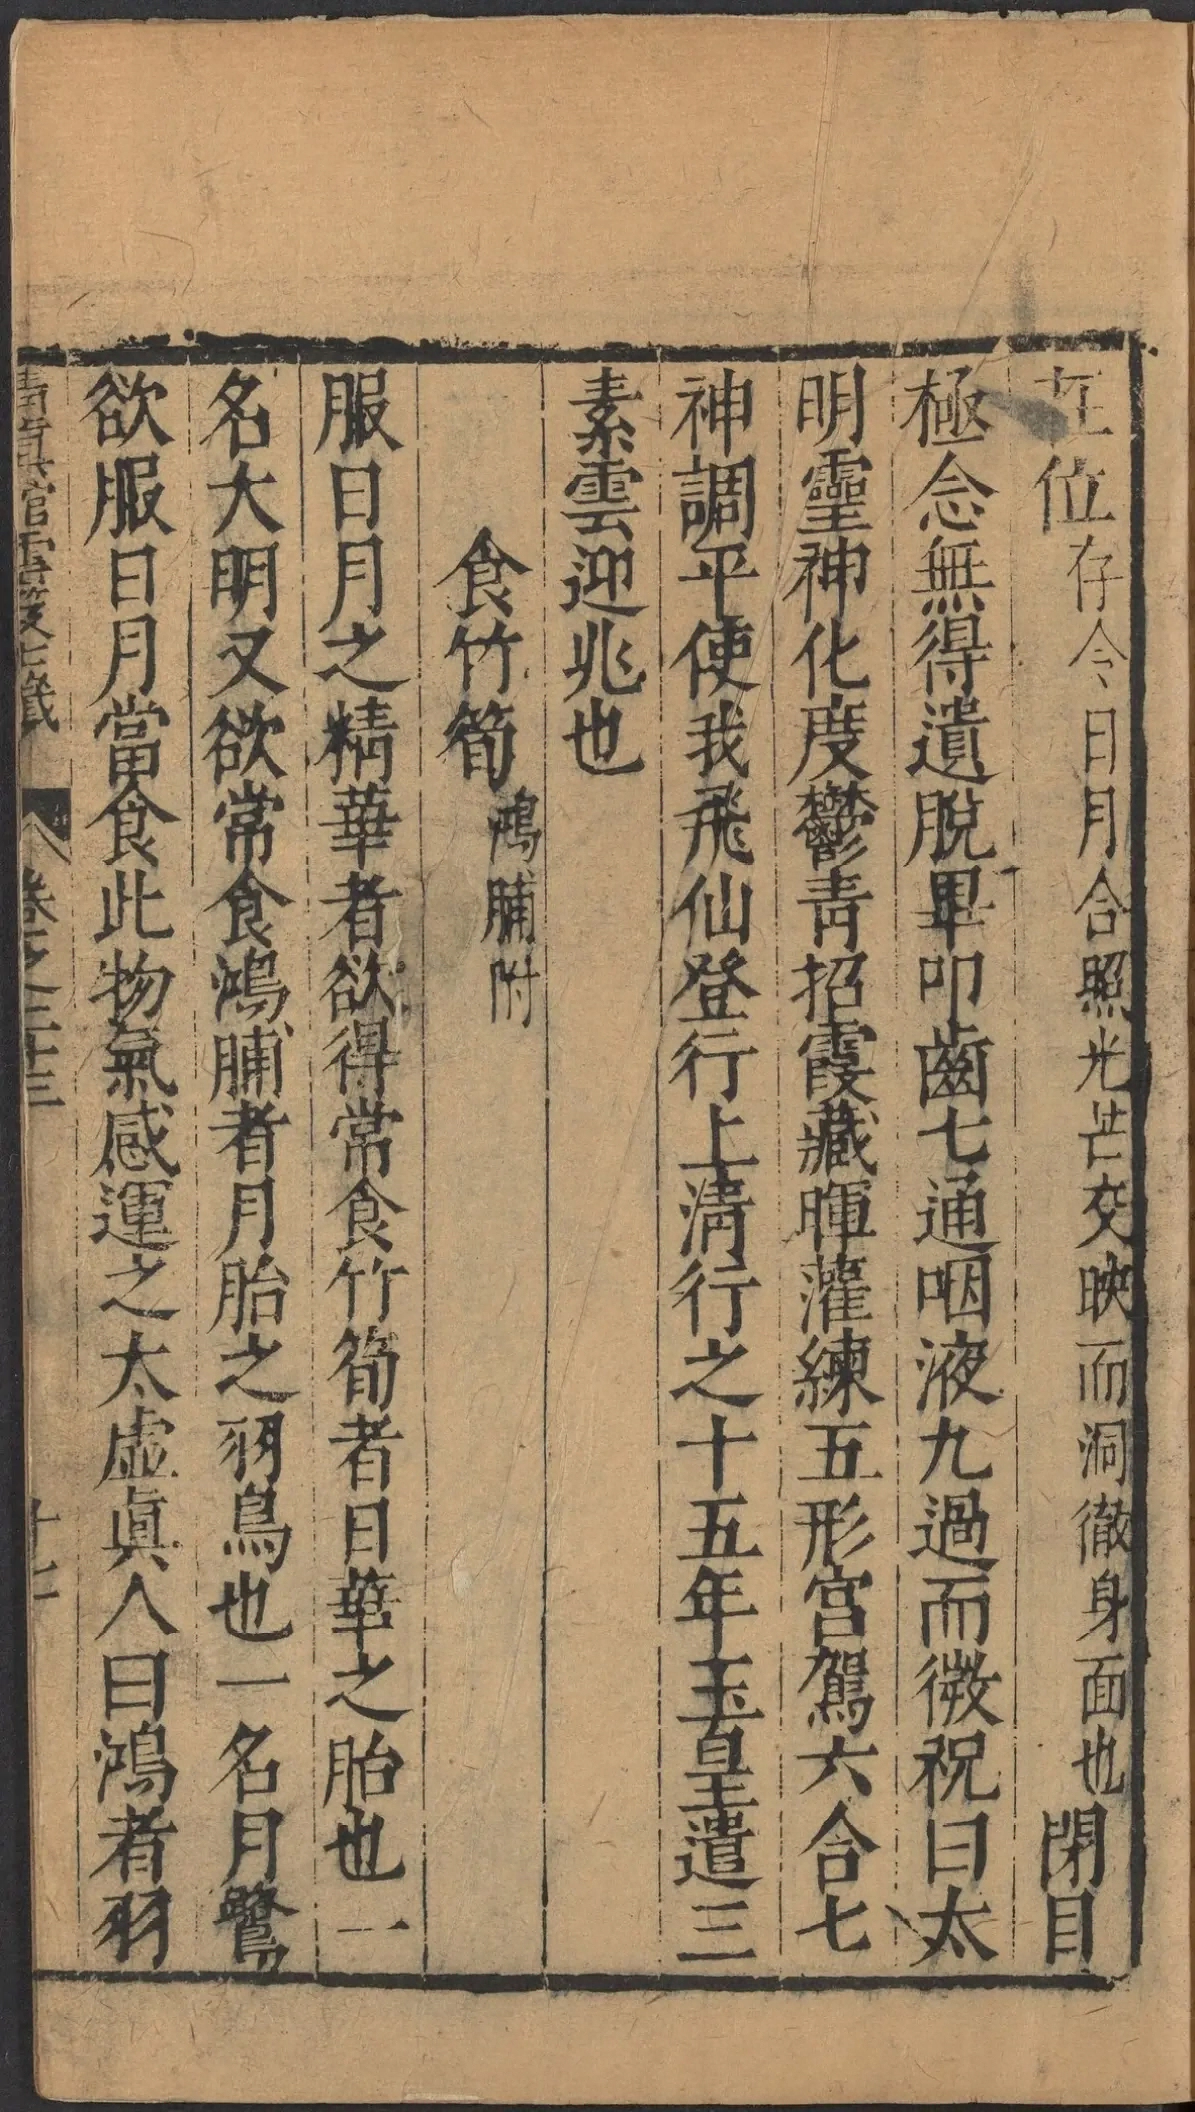 在位存令日月合照光芒交映而洞徹身面也閉目
極念無得遺脫畢叩齒七通咽液九過而微祝曰太
明靈神化度鬱青招霞藏暉灌練五形宮駕六合七
神調平使我飛仙登行上清行之十五年玉皇遣三
素雲迎兆也
食竹筍鴻脯附
服日月之精華者欲得常食竹筍者日華之胎也一
名大明又欲常食鴻脯者月胎之羽鳥也一名月鷺
欲服日月當食此物氣感運之太虛眞人曰鴻者羽
清眞館雲笈七籤 卷之二十三 十七